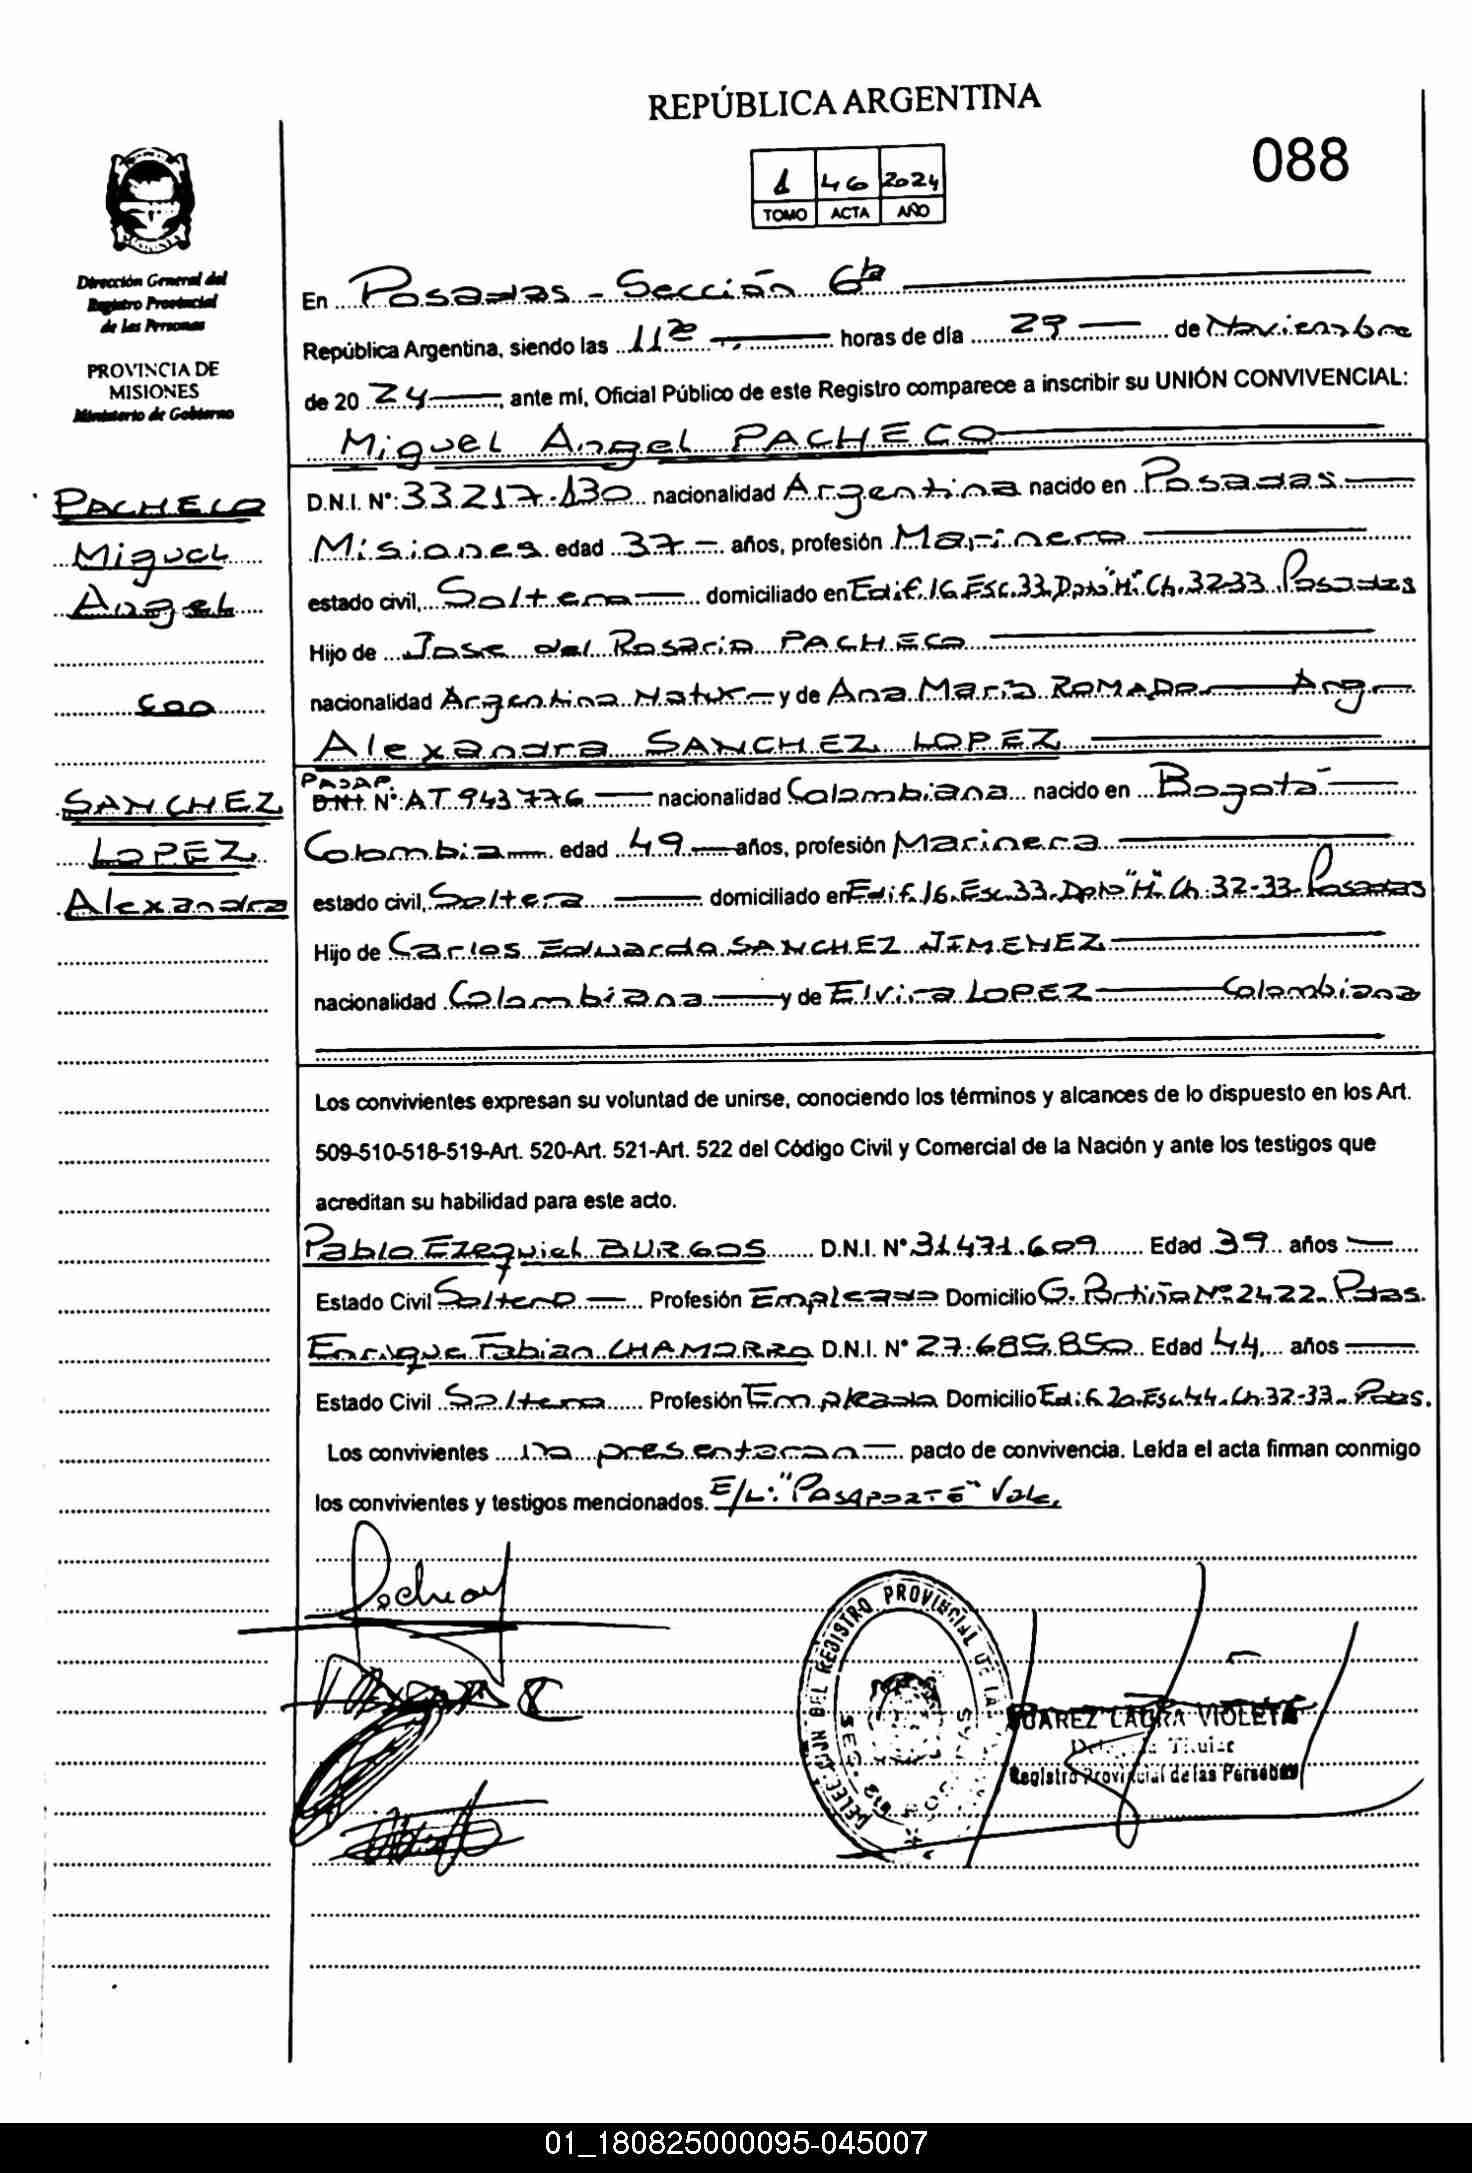 REPÚBLICA ARGENTINA
088
1 46 2024
TOMO ACTA AÑO
Dirección General del
Registro Provincial
de las Personas
PROVINCIA DE
MISIONES
Ministerio de Gobierno
En Posadas - Sección 6ta
República Argentina, siendo las 11 horas de día 29 de Noviembre
de 20 24, ante mí, Oficial Público de este Registro comparece a inscribir su UNIÓN CONVIVENCIAL:
Miguel Angel PACHECO
PACHECO
Miguel
Angel
con
SANCHEZ
LOPEZ
Alexandra
D.N.I. N°: 33.217.130 nacionalidad Argentina nacido en Posadas
Misiones edad 37 años, profesión Marinero
estado civil, Soltero domiciliado en Edif. 16 Esc. 33 Dpto "H" Ch. 32-33 Posadas
Hijo de Jose del Rosario PACHECO
nacionalidad Argentina Natur y de Ana Maria ROMADO Arg
Alexandra SANCHEZ LOPEZ
PASAP.
D.N.I. N°: AT 943776 nacionalidad Colombiana nacido en Bogotá
Colombia edad 49 años, profesión Marinera
estado civil, Soltera domiciliado en Edif. 16. Esc. 33. Dpto "H" Ch. 32-33. Posadas
Hijo de Carlos Eduardo SANCHEZ JIMENEZ
nacionalidad Colombiana y de Elvira LOPEZ Colombiana
Los convivientes expresan su voluntad de unirse, conociendo los términos y alcances de lo dispuesto en los Art.
509-510-518-519-Art. 520-Art. 521-Art. 522 del Código Civil y Comercial de la Nación y ante los testigos que
acreditan su habilidad para este acto.
Pablo Ezequiel BURGOS D.N.I. N° 31.471.609 Edad 39 años
Estado Civil Soltero Profesión Empleado Domicilio G. Portiña N° 2422. Pdas.
Enrique Fabian CHAMORRO D.N.I. N° 27.685.850 Edad 44 años
Estado Civil Soltero Profesión Empleado Domicilio Edif. 20. Esc. 44. Ch. 32-33. Pdas.
Los convivientes no presentaron pacto de convivencia. Leída el acta firman conmigo
los convivientes y testigos mencionados. E/L: "PASAPORTE" Vale.
DELEGACIÓN DEL REGISTRO PROVINCIAL DE LAS
SEC. 6ta POSADAS
SUAREZ LAURA VIOLETA
Titular
Registro Provincial de las Personas
01_180825000095-045007